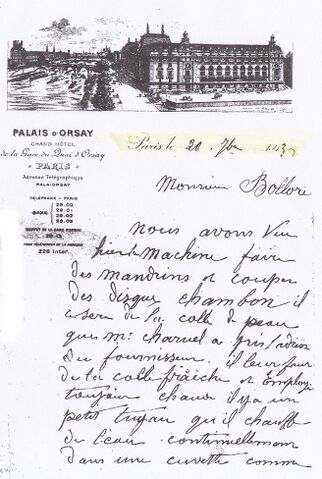 PALAIS D'ORSAY
GRAND HÔTEL
de la Gare du Quai d'Orsay
PARIS
Adresse Télégraphique
PALAIORSAY
TÉLÉPHONE - PARIS
SAXE
Paris le 20 7bre
Monsieur Bolloré
nous avons Vu
hier la Machine faire
des mandrins et couper
des disque chambon il
se sere de la colle de peau
que Mr charuel a pris l'adresse
du fournisseur. il leur faut
de la colle fraîche et employé
toujour chaude il y a un
petit tuyau qui chauffe
de l'eau continuellement
dans une cuvette comme